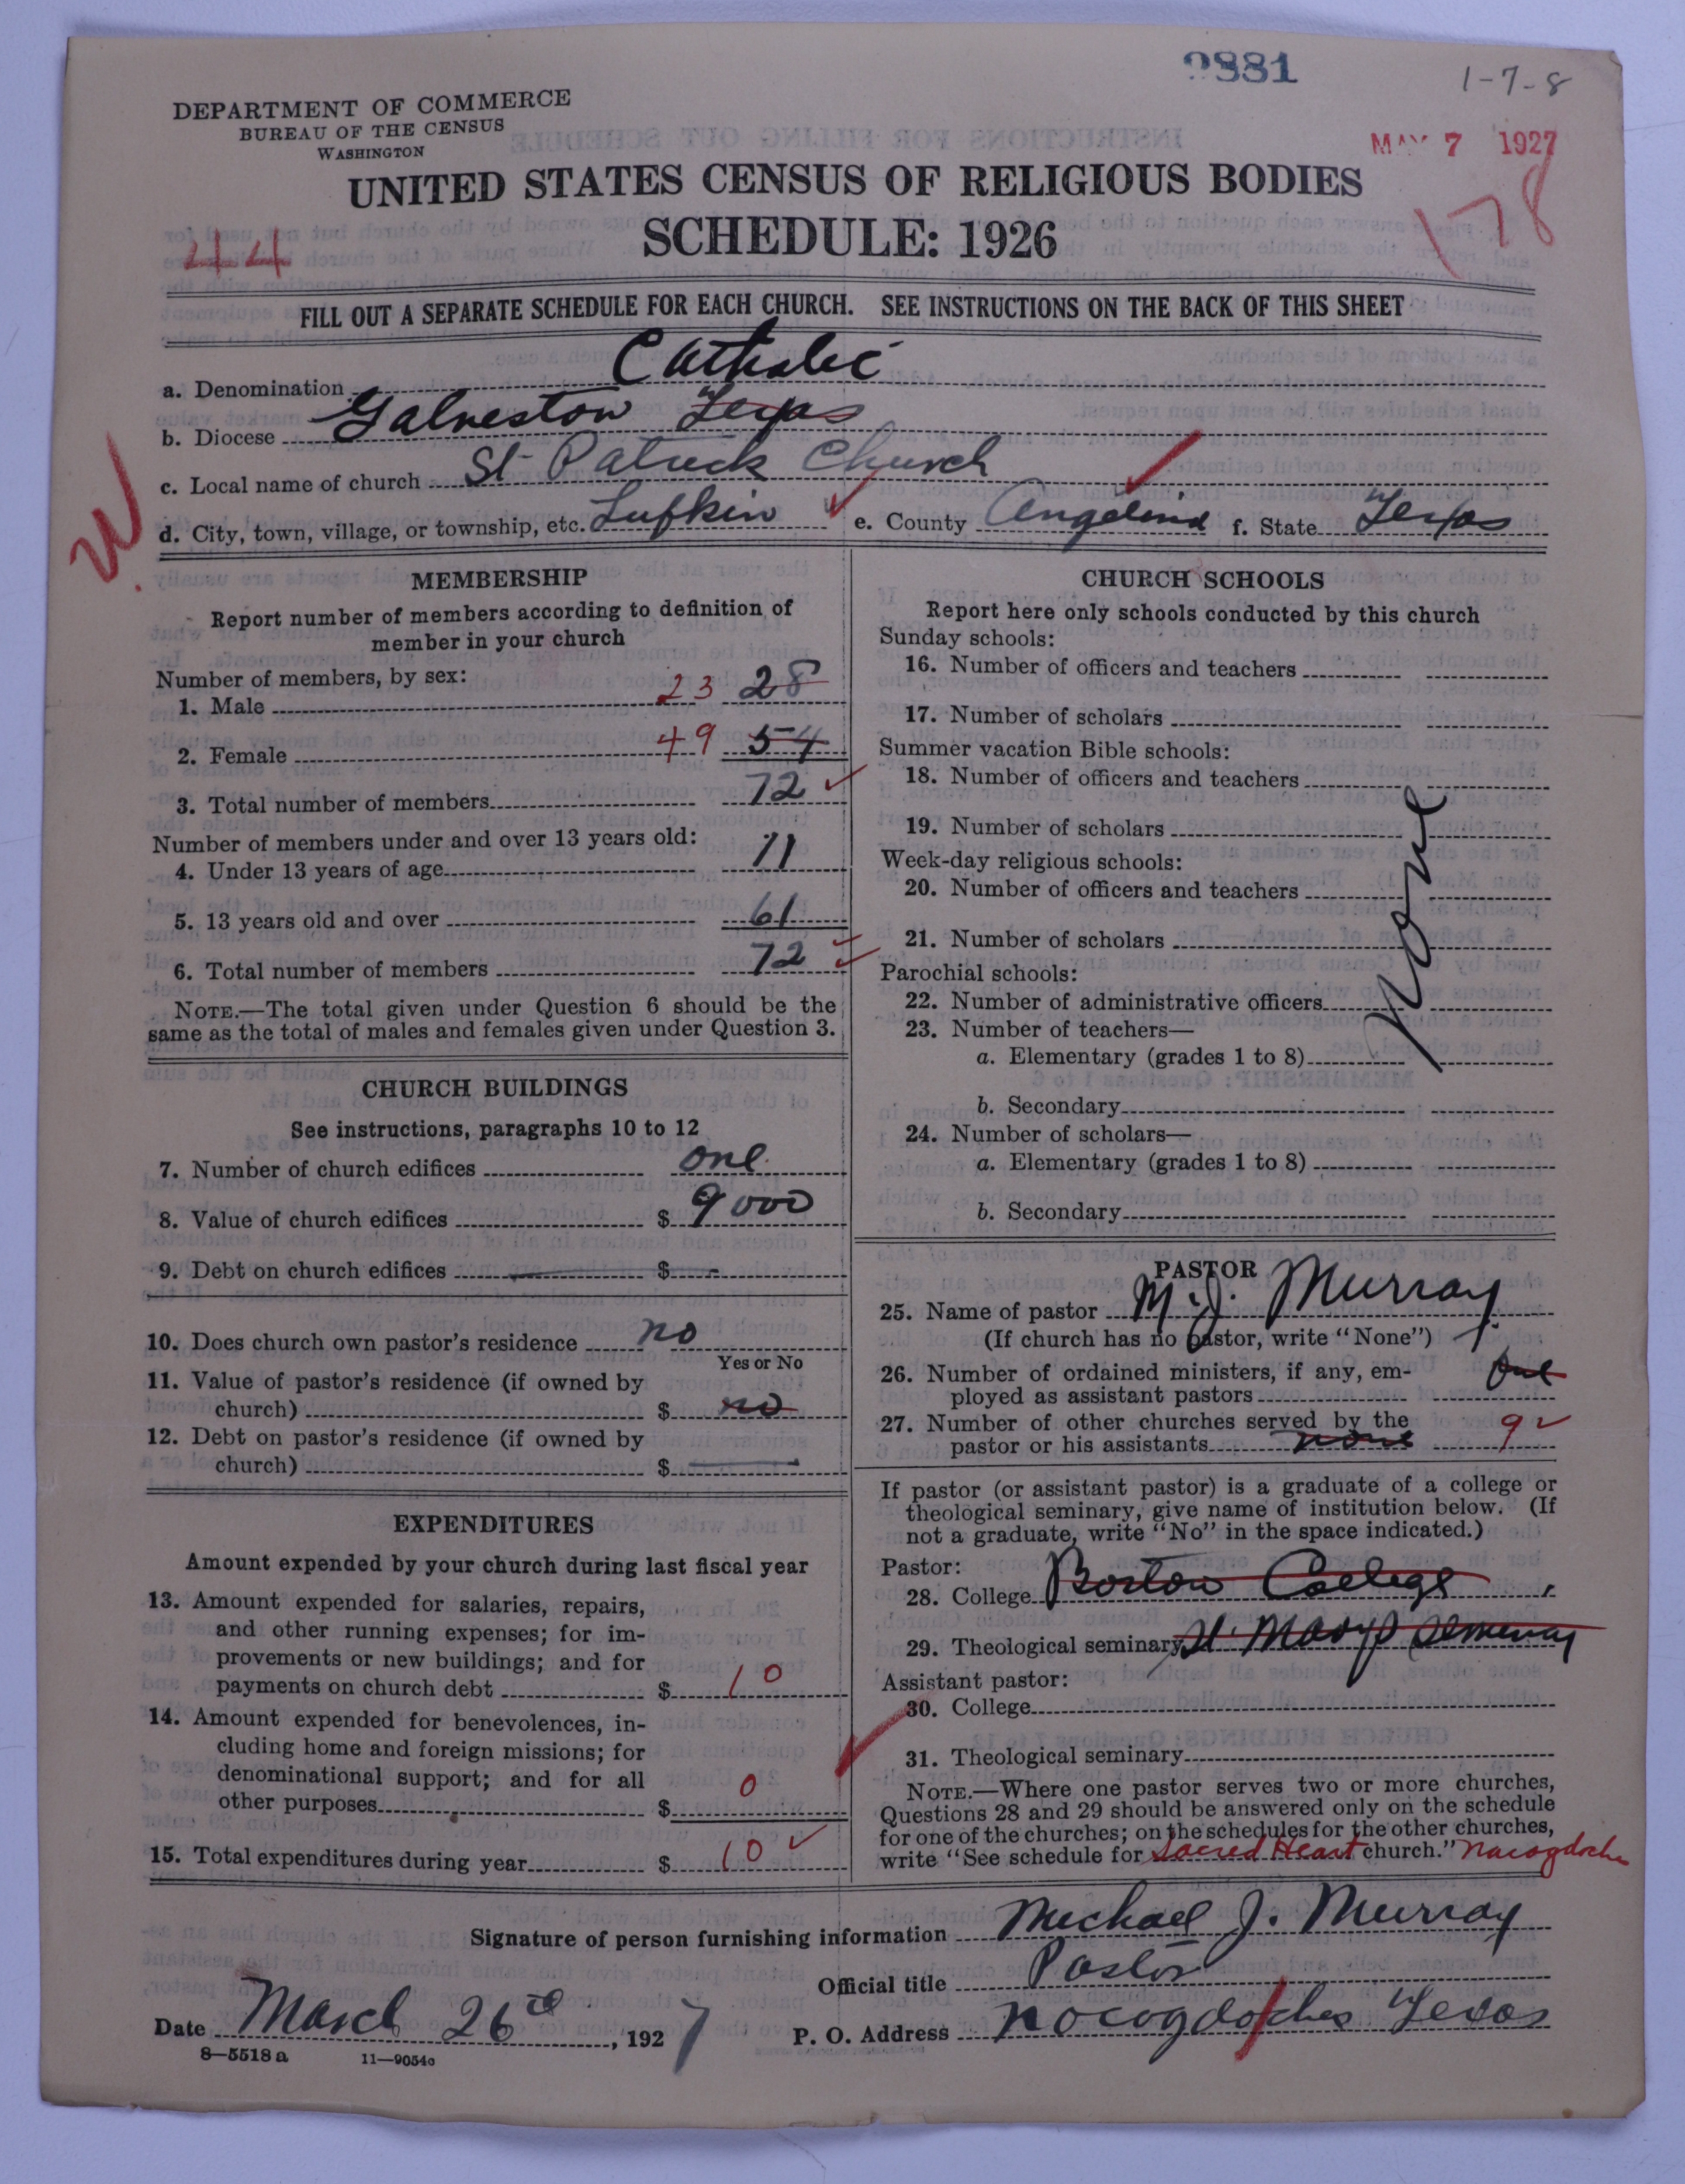 9881
1-7-8
DEPARTMENT OF COMMERCE
BUREAU OF THE CENSUS
WASHINGTON
MAY 7 1927
UNITED STATES CENSUS OF RELIGIOUS BODIES
SCHEDULE: 1926
44
178
FILL OUT A SEPARATE SCHEDULE FOR EACH CHURCH. SEE INSTRUCTIONS ON THE BACK OF THIS SHEET
a. Denomination Catholic
b. Diocese Galveston Texas
c. Local name of church St Patrick Church
d. City, town, village, or township, etc. Lufkin e. County Angelina f. State Texas
W
MEMBERSHIP
Report number of members according to definition of
member in your church
Number of members, by sex:
1. Male 23 28
2. Female 49 54
3. Total number of members 72
Number of members under and over 13 years old:
4. Under 13 years of age 11
5. 13 years old and over 61
6. Total number of members 72
NOTE.—The total given under Question 6 should be the
same as the total of males and females given under Question 3.
CHURCH BUILDINGS
See instructions, paragraphs 10 to 12
7. Number of church edifices one
8. Value of church edifices $ 9000
9. Debt on church edifices $ -
10. Does church own pastor's residence no
Yes or No
11. Value of pastor's residence (if owned by
church) $ no
12. Debt on pastor's residence (if owned by
church) $
EXPENDITURES
Amount expended by your church during last fiscal year
13. Amount expended for salaries, repairs,
and other running expenses; for im-
provements or new buildings; and for
payments on church debt $ 10
14. Amount expended for benevolences, in-
cluding home and foreign missions; for
denominational support; and for all
other purposes $ 0
15. Total expenditures during year $ 10
CHURCH SCHOOLS
Report here only schools conducted by this church
Sunday schools:
16. Number of officers and teachers
17. Number of scholars
Summer vacation Bible schools:
18. Number of officers and teachers
19. Number of scholars
Week-day religious schools:
20. Number of officers and teachers
21. Number of scholars
None
Parochial schools:
22. Number of administrative officers
23. Number of teachers—
a. Elementary (grades 1 to 8)
b. Secondary
24. Number of scholars—
a. Elementary (grades 1 to 8)
b. Secondary
PASTOR
25. Name of pastor M. J. Murray
(If church has no pastor, write "None")
26. Number of ordained ministers, if any, em-
ployed as assistant pastors one
27. Number of other churches served by the
pastor or his assistants none 9
If pastor (or assistant pastor) is a graduate of a college or
theological seminary, give name of institution below. (If
not a graduate, write "No" in the space indicated.)
Pastor:
28. College Boston College
29. Theological seminary St. Marys Seminary
Assistant pastor:
30. College
31. Theological seminary
NOTE.—Where one pastor serves two or more churches,
Questions 28 and 29 should be answered only on the schedule
for one of the churches; on the schedules for the other churches,
write "See schedule for Sacred Heart church." Nacogdoche
Signature of person furnishing information Michael J. Murray
Official title Pastor
Date March 26th, 1927 P. O. Address Nocogdoches Texas
8—5518 a 11—9054c